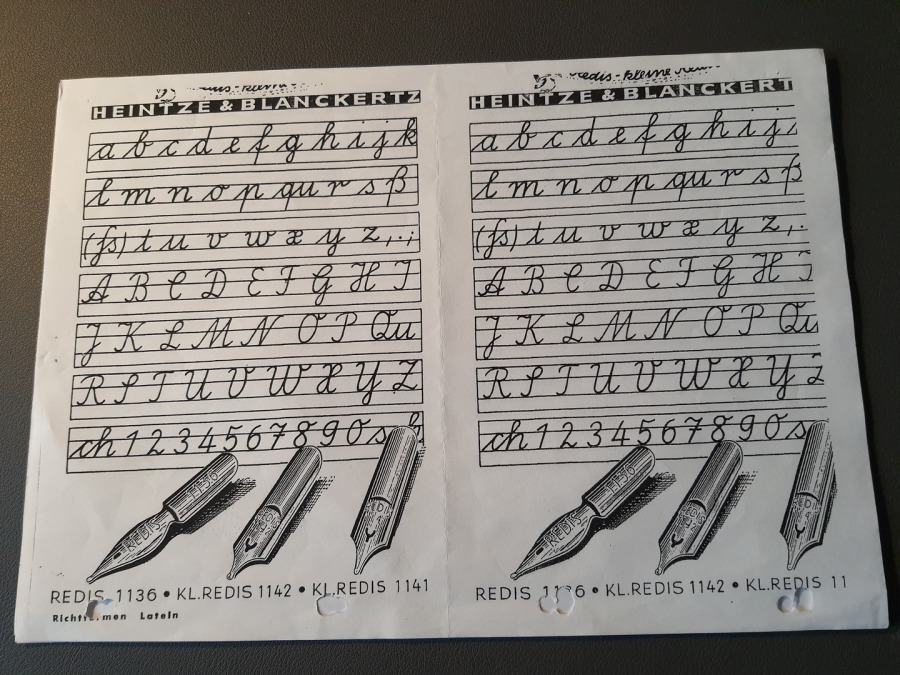 HEINTZE & BLANCKERTZ
a b c d e f g h i j k
l m n o p qu r s ß
(ſs) t u v w x y z , . ;
A B C D E F G H I
J K L M N O P Qu
R S T U V W X Y Z
ch 1 2 3 4 5 6 7 8 9 0 s
REDIS 1136
REDIS 1136 • KL.REDIS 1142 • KL.REDIS 1141
Latein
Redis-kleine
HEINTZE & BLANCKERT
a b c d e f g h i j
l m n o p qu r s ß
(ſs) t u v w x y z , .
A B C D E F G H I
J K L M N O P Qu
R S T U V W X Y Z
ch 1 2 3 4 5 6 7 8 9 0 s
REDIS 1136
REDIS • KL.REDIS 1142 • KL.REDIS 11